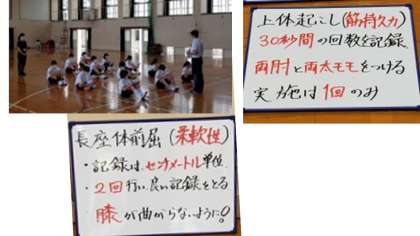 上体起こし(筋持久力)
30秒間の回数を記録
両肘と両太モモをつける
実施は1回のみ
長座体前屈(柔軟性)
・記録は、センチメートル単位
・2回行い、良い記録をとる
膝が曲がらないように!